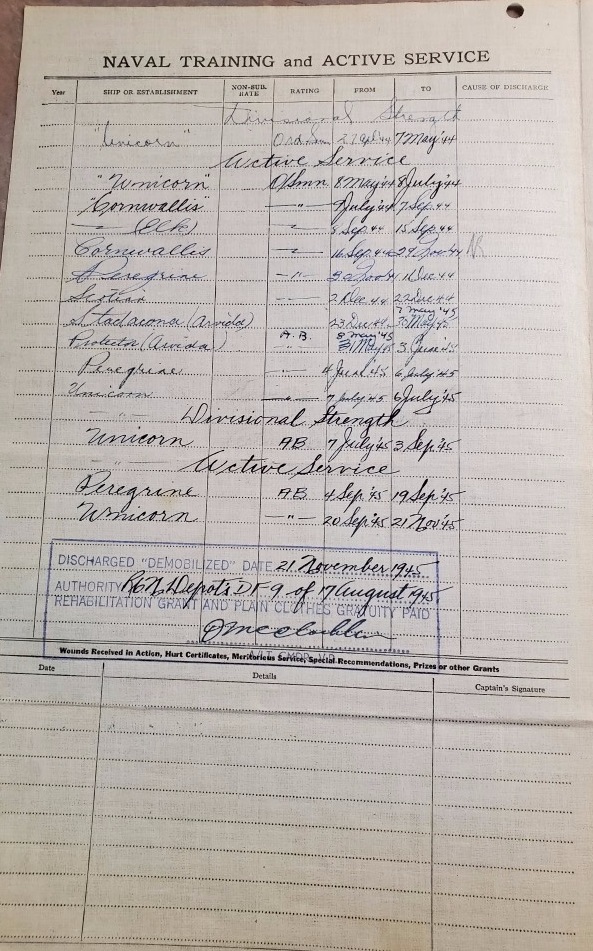 NAVAL TRAINING and ACTIVE SERVICE
Year SHIP OR ESTABLISHMENT NON-SUB. RATE RATING FROM TO CAUSE OF DISCHARGE
Divisional Strength
"Unicorn" Ord Smn 27 Apl 44 7 May '44
Active Service
"Unicorn" O/Smn 8 May '44 8 July '44
"Cornwallis" — " — 9 July '44 7 Sep. 44
— " — (Elk) 8 Sep. 44 15 Sep. 44
Cornwallis 16 Sep. 44 29 Nov 44
Peregrine — " — 30 Nov 44 1 Dec 44
Scotian 2 Dec 44 22 Dec 44
7 May '45
Stadacona (Arvida) 23 Dec 44
A.B. 8 May '45
Protector (Arvida) 3 June '45
Peregrine 4 June '45 6 July '45
Unicorn — " — 7 July '45 6 July '45
Divisional Strength
Unicorn AB 7 July '45 3 Sep. '45
Active Service
Peregrine AB 4 Sep. '45 19 Sep. '45
Unicorn — " — 20 Sep. '45 21 Nov. '45
DISCHARGED "DEMOBILIZED" DATE 21 November 1945
AUTHORITY RCN Depot's DF 9 of 17 August 1945
REHABILITATION GRANT AND PLAIN CLOTHES GRATUITY PAID
Wounds Received in Action, Hurt Certificates, Meritorious Service, Special Recommendations, Prizes or other Grants
Date Details Captain's Signature